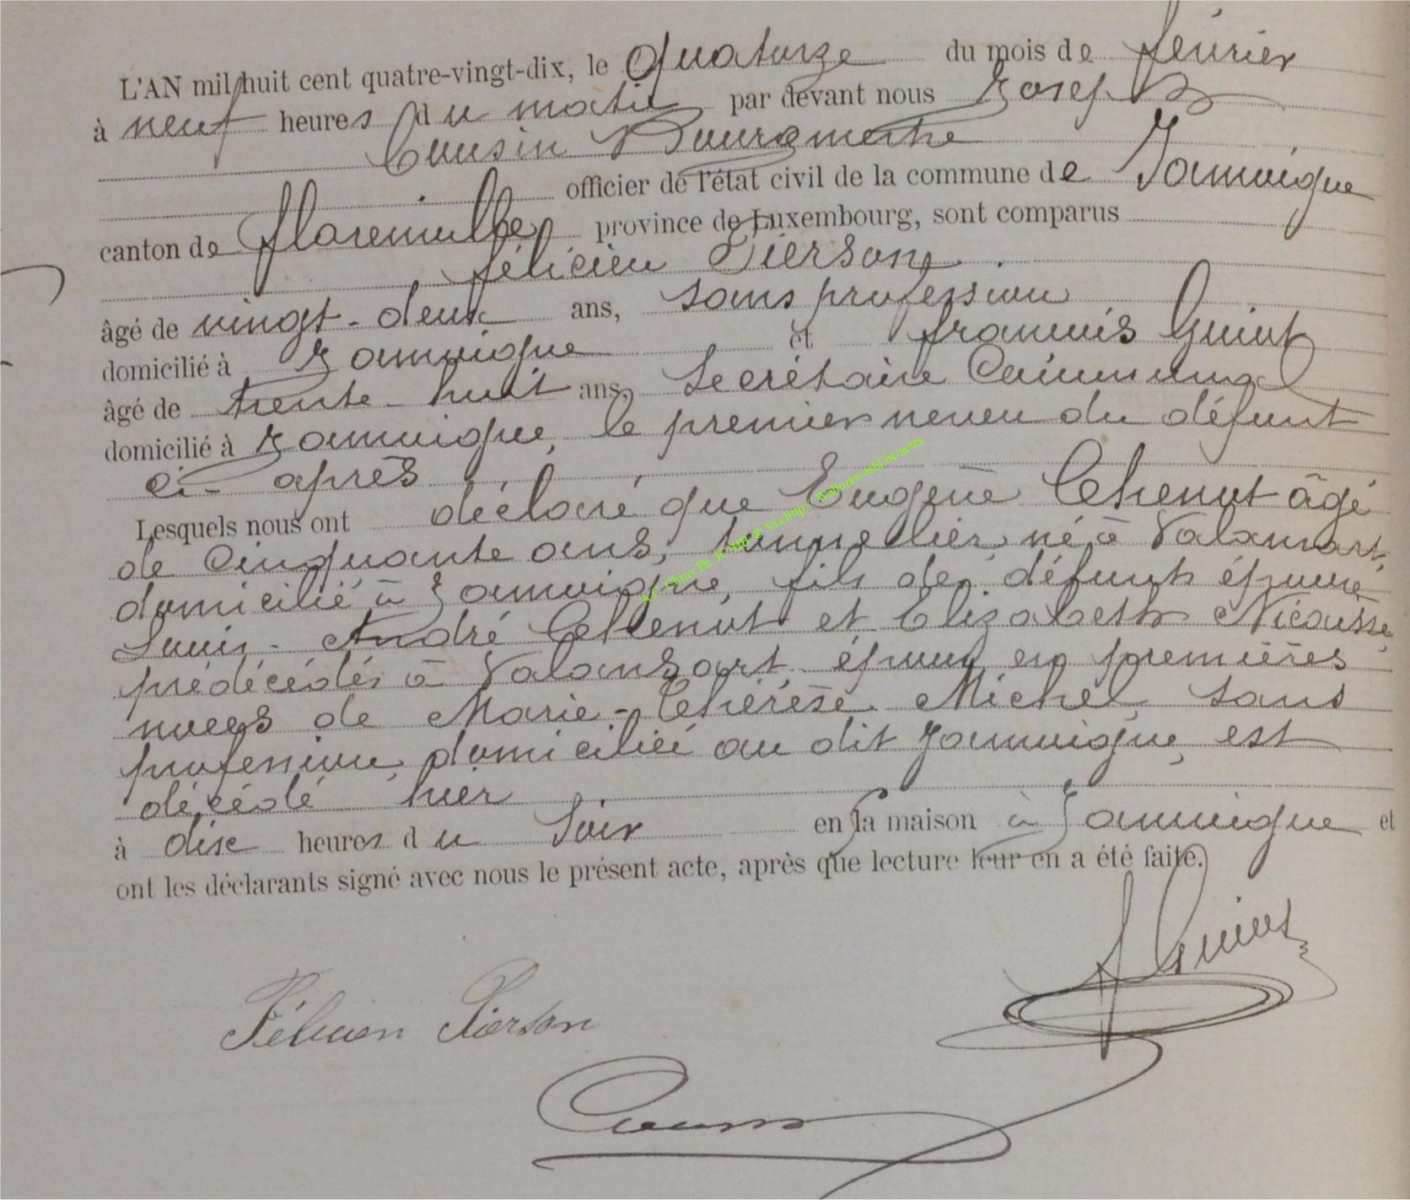 L'AN mil huit cent quatre-vingt-dix, le quatorze du mois de février
à neuf heures du matin par devant nous Josep
Cousin Bourgmestre
officier de l'état civil de la commune de Jamoigne
canton de Florenville, province de Luxembourg, sont comparus
Félicien Pierson
âgé de vingt-deux ans, sans profession
domicilié à Jamoigne et François Guiot
âgé de trente-huit ans, Secrétaire Communal
domicilié à Jamoigne, le premier neveu du défunt
ci-après
Lesquels nous ont déclaré que Eugène Thenot âgé
de cinquante ans, tonnelier, né à Valansart,
domicilié à Jamoigne, fils des défunts époux
Louis-André Thenot et Elizabeth Nicausse,
prédécédés à Valansart, époux en premières
noces de Marie-Thérèse Michel, sans
profession, domiciliée au dit Jamoigne, est
décédé hier
à dix heures du soir en sa maison à Jamoigne et
ont les déclarants signé avec nous le présent acte, après que lecture leur en a été faite.
Guiot
Félicien Pierson
Cousin